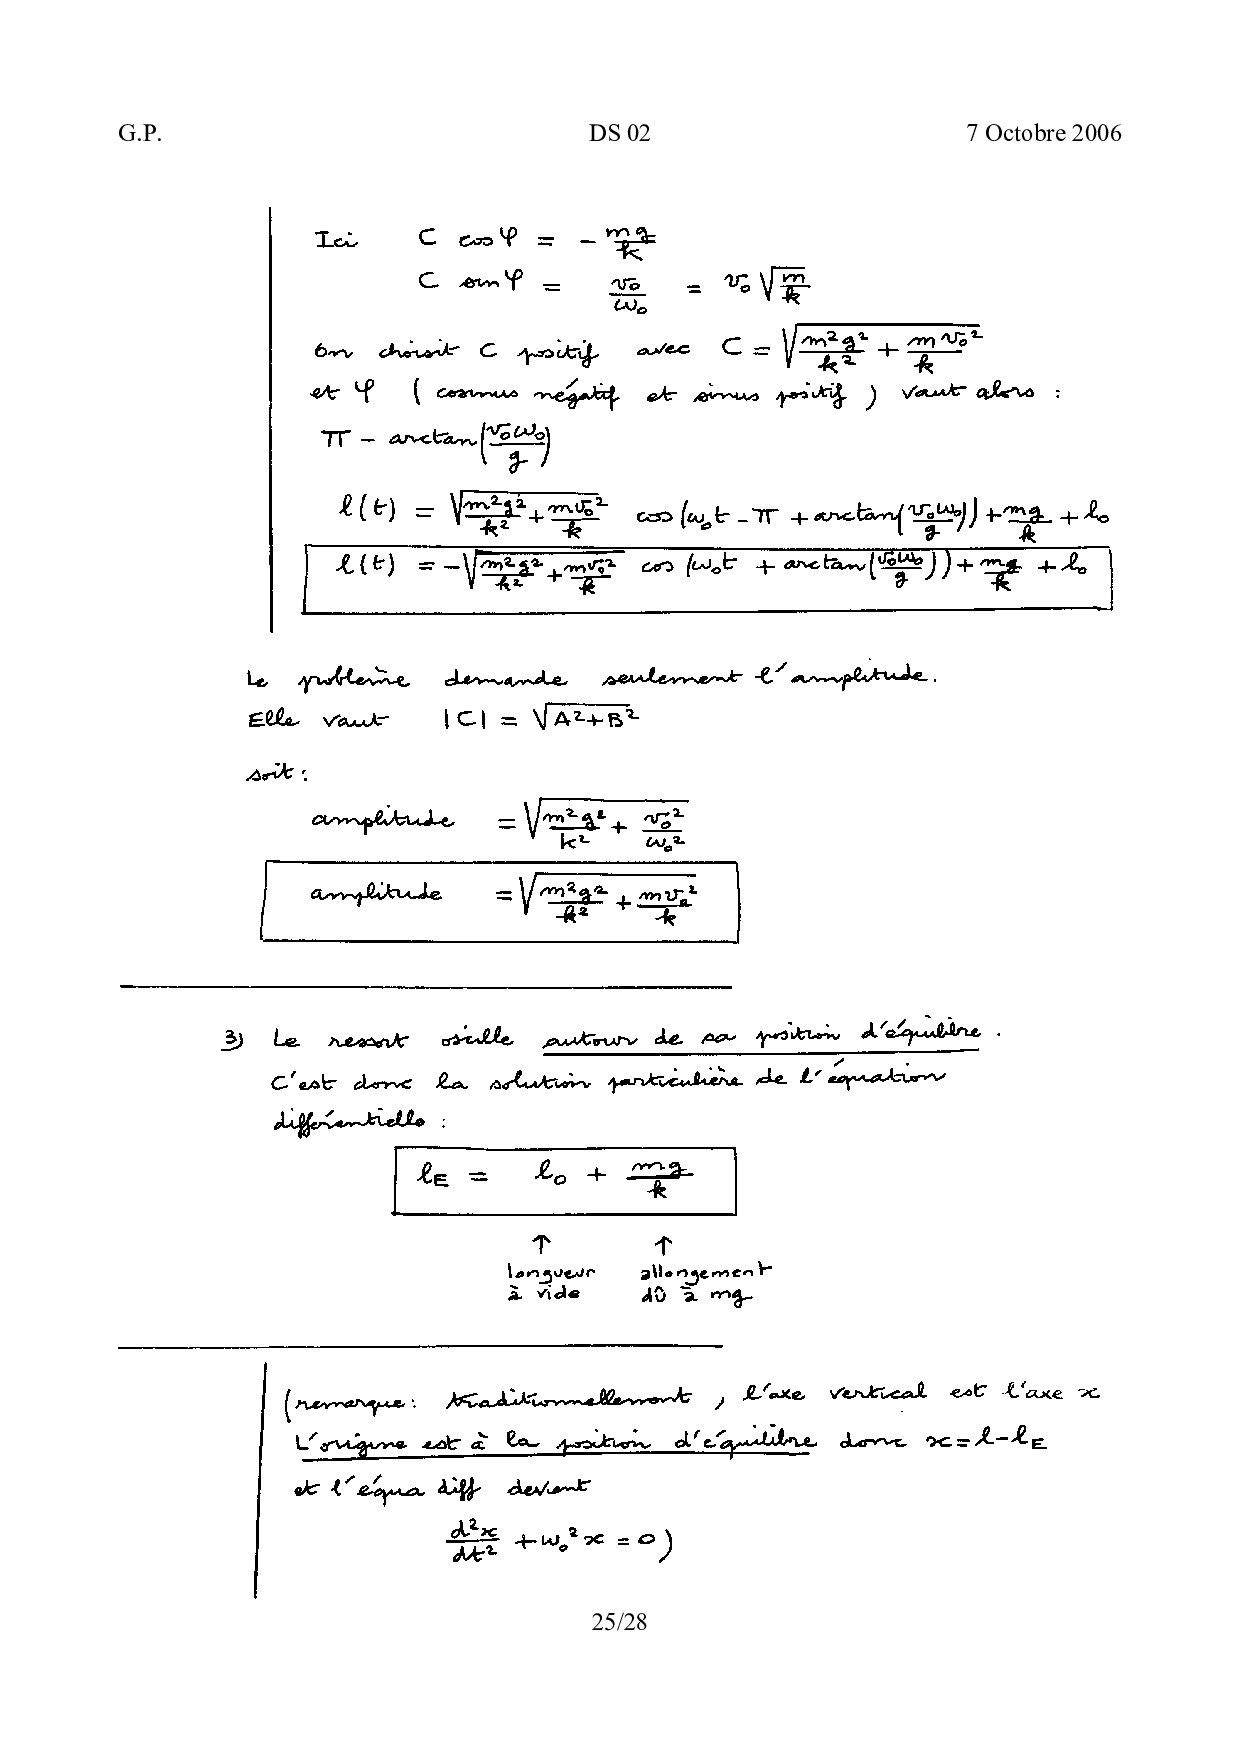 G.P. DS 02 7 Octobre 2006
Ici C cos φ = - mg/k
C sin φ = v₀/ω₀ = v₀ √(m/k)
On choisit C positif avec C = √(m²g²/k² + mv₀²/k)
et φ ( cosinus négatif et sinus positif ) vaut alors :
π - arctan(v₀ω₀/g)
l(t) = √(m²g²/k² + mv₀²/k) cos(ω₀t - π + arctan(v₀ω₀/g)) + mg/k + l₀
l(t) = -√(m²g²/k² + mv₀²/k) cos(ω₀t + arctan(v₀ω₀/g)) + mg/k + l₀
Le problème demande seulement l'amplitude.
Elle vaut |C| = √(A²+B²)
soit :
amplitude = √(m²g²/k² + v₀²/ω₀²)
amplitude = √(m²g²/k² + mv₀²/k)
3) Le ressort oscille autour de sa position d'équilibre .
C'est donc la solution particulière de l'équation
différentielle :
l_E = l₀ + mg/k
↑ ↑
longueur allongement
à vide dû à mg
(remarque : traditionnellement , l'axe vertical est l'axe x
L'origine est à la position d'équilibre donc x = l - l_E
et l'équa diff devient
d²x/dt² + ω₀² x = 0 )
25/28